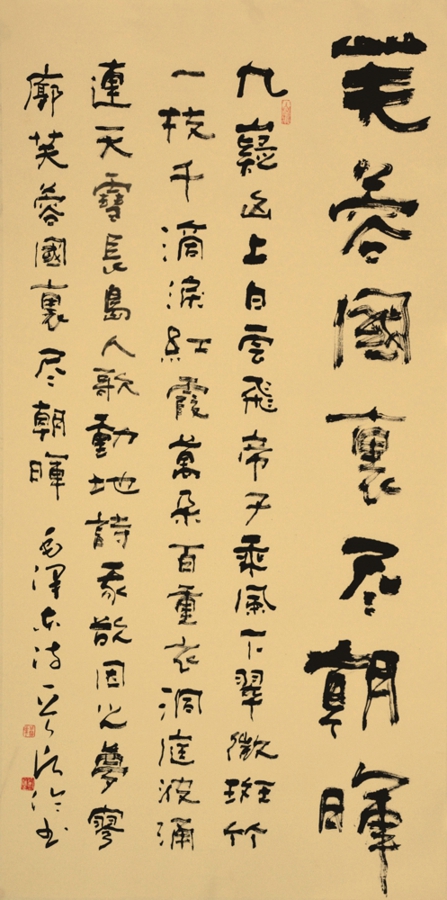 芙蓉國裏尽朝暉
九嶷山上白雲飛帝子乘風下翠微斑竹
一枝千滴淚紅霞萬朵百重衣洞庭波涌
連天雪長島人歌動地詩我欲因之夢寥
廓芙蓉國裏尽朝暉 毛澤东诗一首